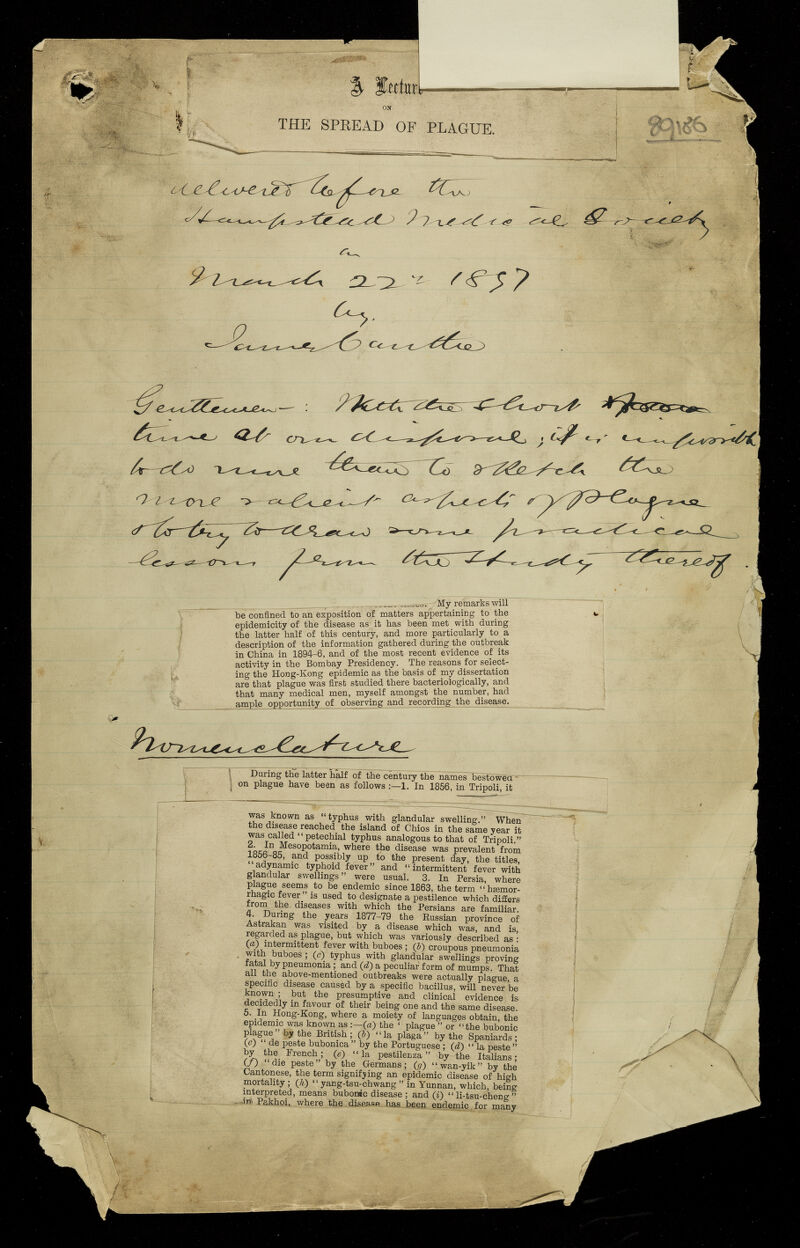 A Lectur
ON
THE SPREAD OF PLAGUE.
89186
delivered before the
Hampstead Medical Society
on
March 22nd 1897
by
James Cantlie
Gentlemen - : With the short
time at our disposal, it is impossible
to do more than to sketch the
more salient aspects of Plague
& to try to draw some practical
lessons from the study thereof.
My remarks will
be confined to an exposition of matters appertaining to the
epidemicity of the disease as it has been met with during
the latter half of this century, and more particularly to a
description of the information gathered during the outbreak
in China in 1894-6, and of the most recent evidence of its
activity in the Bombay Presidency. The reasons for select-
ing the Hong-Kong epidemic as the basis of my dissertation
are that plague was first studied there bacteriologically, and
that many medical men, myself amongst the number, had
ample opportunity of observing and recording the disease.
Nomenclature
During the latter half of the century the names bestowed
on plague have been as follows :—1. In 1856, in Tripoli, it
was known as "typhus with glandular swelling." When
the disease reached the island of Chios in the same year it
was called "petechial typhus analogous to that of Tripoli."
2. In Mesopotamia, where the disease was prevalent from
1856-85, and possibly up to the present day, the titles,
"adynamic typhoid fever" and "intermittent fever with
glandular swellings" were usual. 3. In Persia, where
plague seems to be endemic since 1863, the term "hæmor-
rhagic fever" is used to designate a pestilence which differs
from the diseases with which the Persians are familiar.
4. During the years 1877-79 the Russian province of
Astrakan was visited by a disease which was, and is,
regarded as plague, but which was variously described as :
(a) intermittent fever with buboes ; (b) croupous pneumonia
with buboes ; (c) typhus with glandular swellings proving
fatal by pneumonia ; and (d) a peculiar form of mumps. That
all the above-mentioned outbreaks were actually plague, a
specific disease caused by a specific bacillus, will never be
known ; but the presumptive and clinical evidence is
decidedly in favour of their being one and the same disease.
5. In Hong-Kong, where a moiety of languages obtain, the
epidemic was known as :—(a) the ' plague " or "the bubonic
plague" by the British ; (b) "la plaga" by the Spaniards ;
(c) "de peste bubonica" by the Portuguese ; (d) "la peste"
by the French ; (e) "la pestilenza" by the Italians ;
(f) "die peste" by the Germans ; (g) "wan-yik" by the
Cantonese, the term signifying an epidemic disease of high
mortality ; (h) "yang-tsu-chwang" in Yunnan, which, being
interpreted, means bubonic disease ; and (i) "li-tsu-cheng"
in Pakhoi, where the disease has been endemic for many